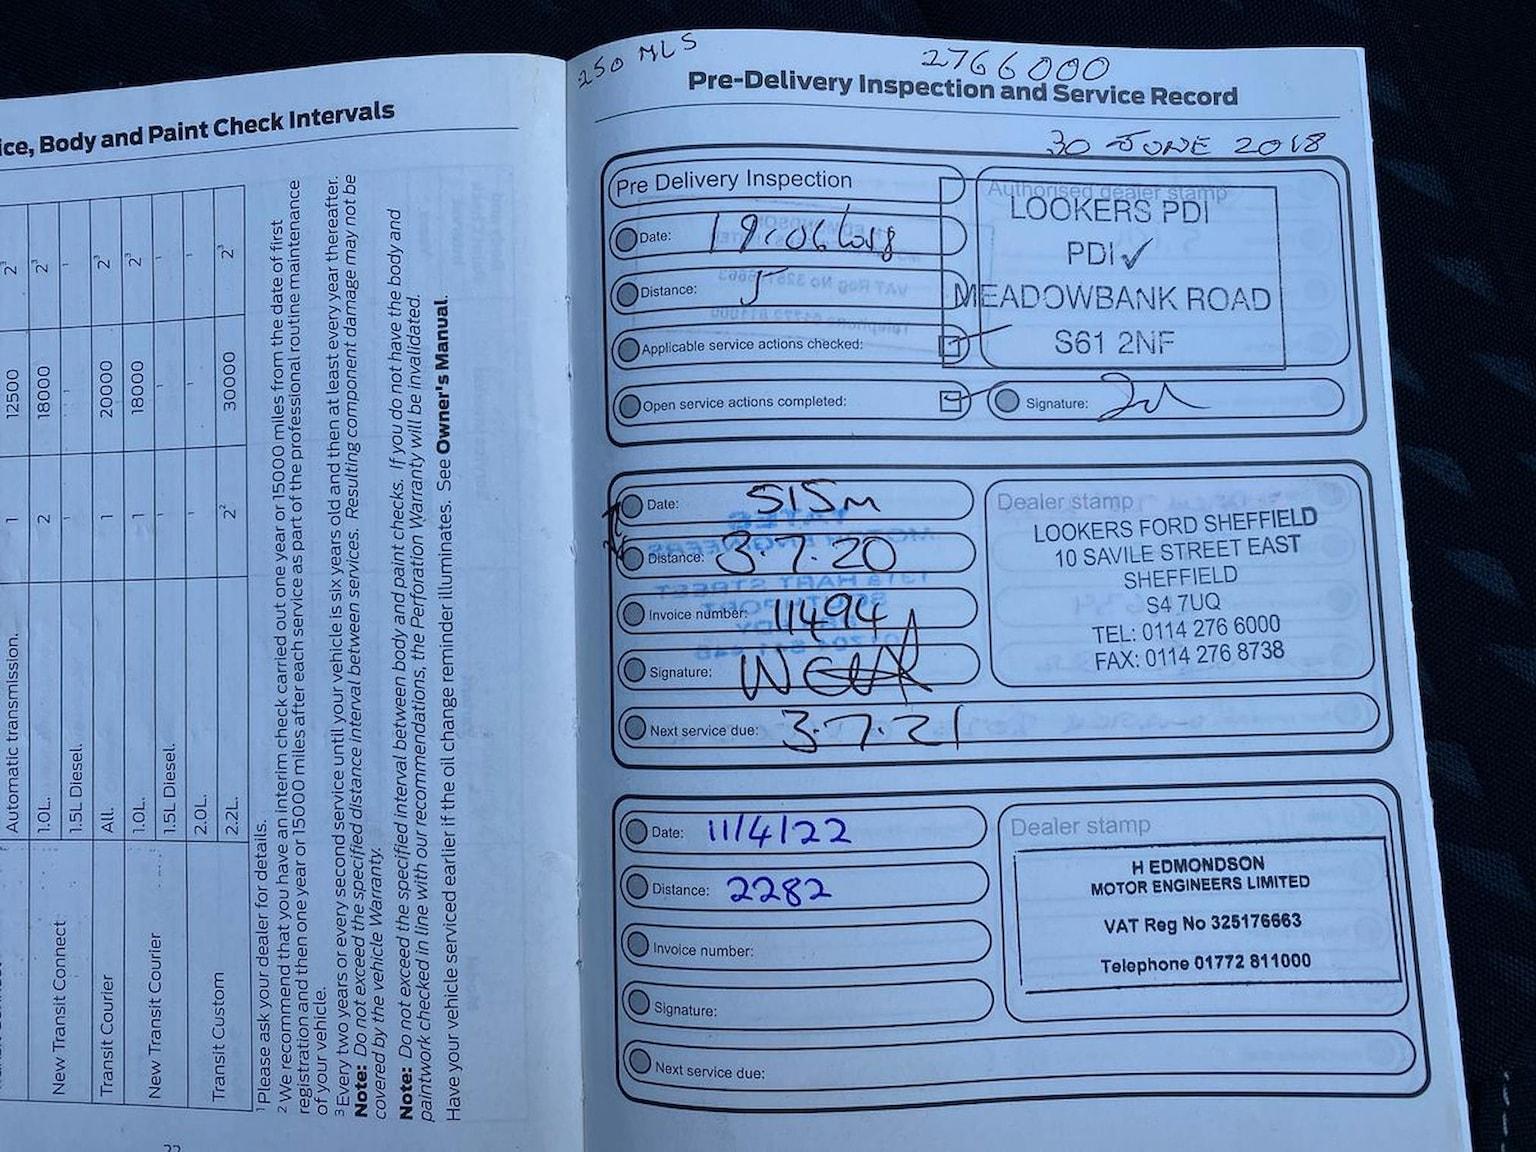 ice, Body and Paint Check Intervals
Automatic transmission. 1 12500 2³
1.0L. 2 18000 2³
1.5L Diesel. - - -
New Transit Connect
All. 1 20000 2³
Transit Courier
1.0L. 1 18000 2³
1.5L Diesel. - - -
New Transit Courier
2.0L. - - -
2.2L. 2² 30000 2³
Transit Custom
¹ Please ask your dealer for details.
² We recommend that you have an interim check carried out one year or 15000 miles from the date of first
registration and then one year or 15000 miles after each service as part of the professional routine maintenance
of your vehicle.
³ Every two years or every second service until your vehicle is six years old and then at least every year thereafter.
Note: Do not exceed the specified distance interval between services. Resulting component damage may not be
covered by the vehicle Warranty.
Note: Do not exceed the specified interval between body and paint checks. If you do not have the body and
paintwork checked in line with our recommendations, the Perforation Warranty will be invalidated.
Have your vehicle serviced earlier if the oil change reminder illuminates. See Owner's Manual.
22
250 MLS
2766000
Pre-Delivery Inspection and Service Record
30 JUNE 2018
Pre Delivery Inspection
Date: 19.06/2018
Distance: 5
Applicable service actions checked:
Open service actions completed:
Authorised dealer stamp
LOOKERS PDI
PDI ✓
MEADOWBANK ROAD
S61 2NF
Signature:
Date: 515m
Distance: 3.7.20
Invoice number: 11494
Signature:
Next service due: 3.7.21
Dealer stamp
LOOKERS FORD SHEFFIELD
10 SAVILE STREET EAST
SHEFFIELD
S4 7UQ
TEL: 0114 276 6000
FAX: 0114 276 8738
Date: 11/4/22
Distance: 2282
Invoice number:
Signature:
Next service due:
Dealer stamp
H EDMONDSON
MOTOR ENGINEERS LIMITED
VAT Reg No 325176663
Telephone 01772 811000